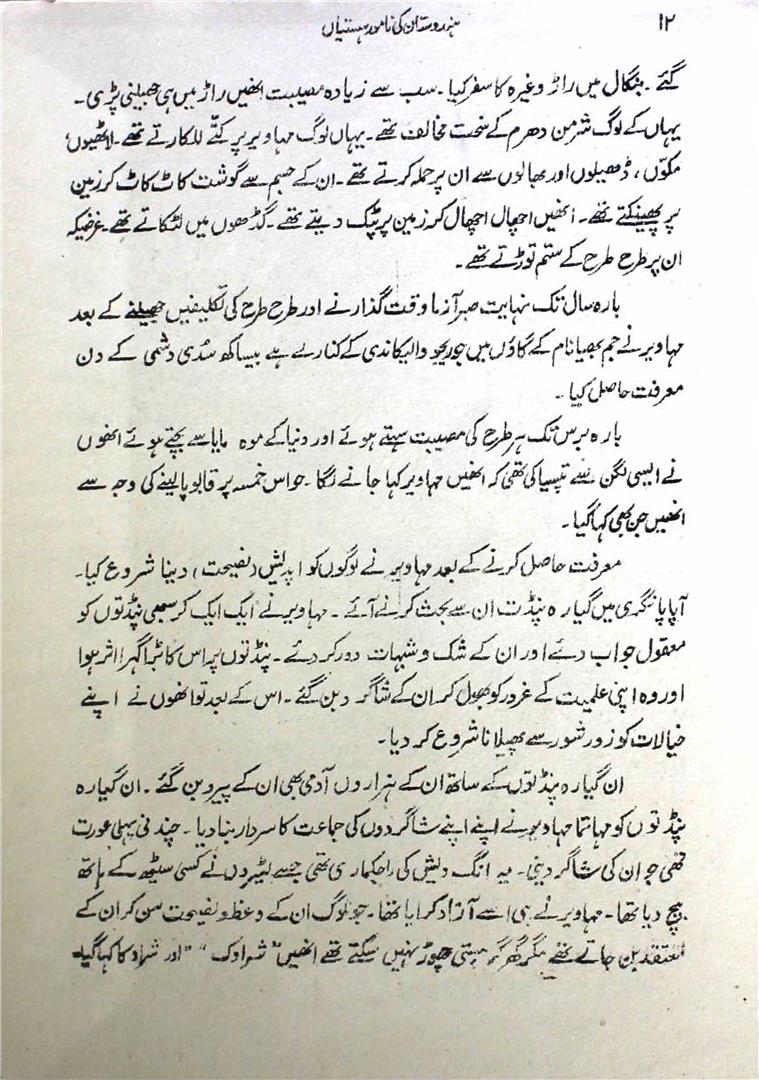 ۱۲
ہندوستان کی نامور ہستیاں
گئے ۔ بنگال میں راڑ وغیرہ کا سفر کیا ۔ سب سے زیادہ مصیبت انھیں راڑ میں ہی جھیلنی پڑی ۔
یہاں کے لوگ شرمن دھرم کے سخت مخالف تھے ۔ یہاں لوگ مہاویر پر کتّے للکارتے تھے ۔ لاٹھیوں،
مکوّں ، ڈھیلوں اور بھالوں سے ان پر حملہ کرتے تھے ۔ ان کے جسم سے گوشت کاٹ کاٹ کر زمین
پر پھینکتے تھے ۔ انھیں اچھال اچھال کر زمین پر پٹک دیتے تھے ۔ گڈھوں میں لٹکاتے تھے ۔ غرضیکہ
ان پر طرح طرح کے ستم توڑتے تھے ۔
بارہ سال تک نہایت صبر آزما وقت گذارنے اور طرح طرح کی تکلیفیں جھیلنے کے بعد
مہاویر نے جم بھیا نام کے گاؤں میں جوریجو والیکا ندی کے کنارے ہے بیساکھ سُدی دشمی کے دن
معرفت حاصل کیا ۔
بارہ برس تک ہر طرح کی مصیبت سہتے ہوئے اور دنیا کے موہ مایا سے بچتے ہوئے انھوں
نے ایسی لگن سے تپسیا کی تھی کہ انھیں مہاویر کہا جانے لگا ۔ حواس خمسہ پر قابو پا لینے کی وجہ سے
انھیں جن بھی کہا گیا ۔
معرفت حاصل کرنے کے بعد مہاویر نے لوگوں کو اپدیش (نصیحت) دینا شروع کیا ۔
آپاپا نگری میں گیارہ پنڈت ان سے بحث کرنے آئے ۔ مہاویر نے ایک ایک کر سبھی پنڈتوں کو
معقول جواب دئے اور ان کے شک و شبہات دور کر دئے ۔ پنڈتوں پر اس کا بڑا گہرا اثر ہوا
اور وہ اپنی علمیت کے غرور کو بھول کر ان کے شاگرد بن گئے ۔ اس کے بعد تو انھوں نے اپنے
خیالات کو زور شور سے پھیلانا شروع کر دیا ۔
ان گیارہ پنڈتوں کے ساتھ ان کے ہزاروں آدمی بھی ان کے پیرو بن گئے ۔ ان گیارہ
پنڈتوں کو مہاتما مہاویر نے اپنے اپنے شاگردوں کی جماعت کا سردار بنا دیا ۔ چندنی پہلی عورت
تھی جو ان کی شاگرد بنی ۔ یہ انگ دیش کی راجکماری تھی جسے لٹیروں نے کسی سیٹھ کے ہاتھ
بیچ دیا تھا ۔ مہاویر نے ہی اسے آزاد کرایا تھا ۔ جو لوگ ان کے وعظ و نصیحت سن کر ان کے
معتقد بن جاتے تھے مگر گھر گرہستی چھوڑ نہیں سکتے تھے انھیں "شراوک" اور شراوکا کہا گیا ۔